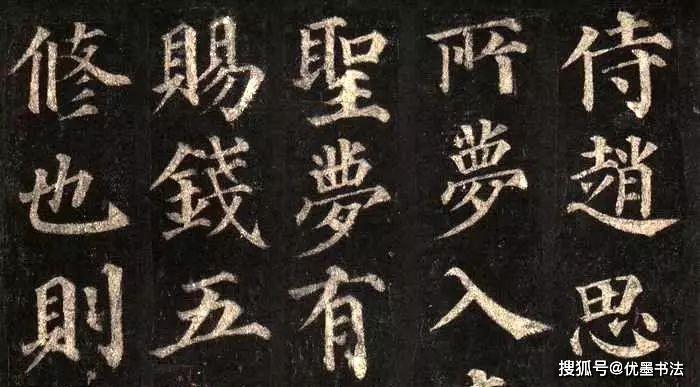 侍趙思
所夢入
聖夢有
賜錢五
修也則
搜狐号@优墨书法